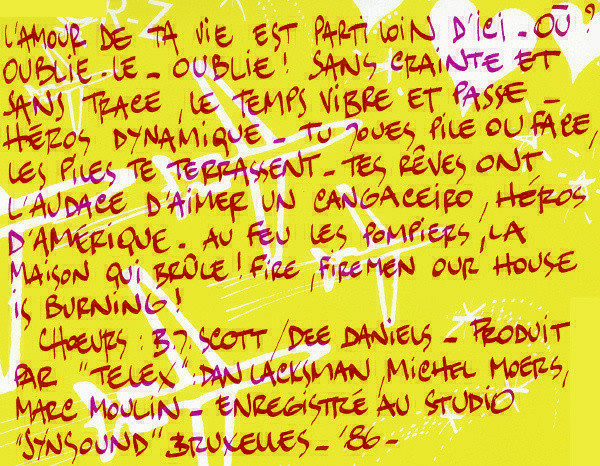 L'AMOUR DE TA VIE EST PARTI LOIN D'ICI - OÙ ?
OUBLIE-LE - OUBLIE! SANS CRAINTE ET
SANS TRACE, LE TEMPS VIBRE ET PASSE -
HÉROS DYNAMIQUE - TU JOUES PILE OU FACE,
LES PILES TE TERRASSENT - TES RÊVES ONT
L'AUDACE D'AIMER UN CANGACEIRO, HÉROS
D'AMÉRIQUE. AU FEU LES POMPIERS, LA
MAISON QUI BRÛLE! FIRE, FIREMEN OUR HOUSE
IS BURNING!
CHŒURS: B.J. SCOTT / DEE DANIELS - PRODUIT
PAR "TELEX": DAN LACKSMAN, MICHEL MOERS,
MARC MOULIN - ENREGISTRÉ AU STUDIO
"SYNSOUND" BRUXELLES - '86 -